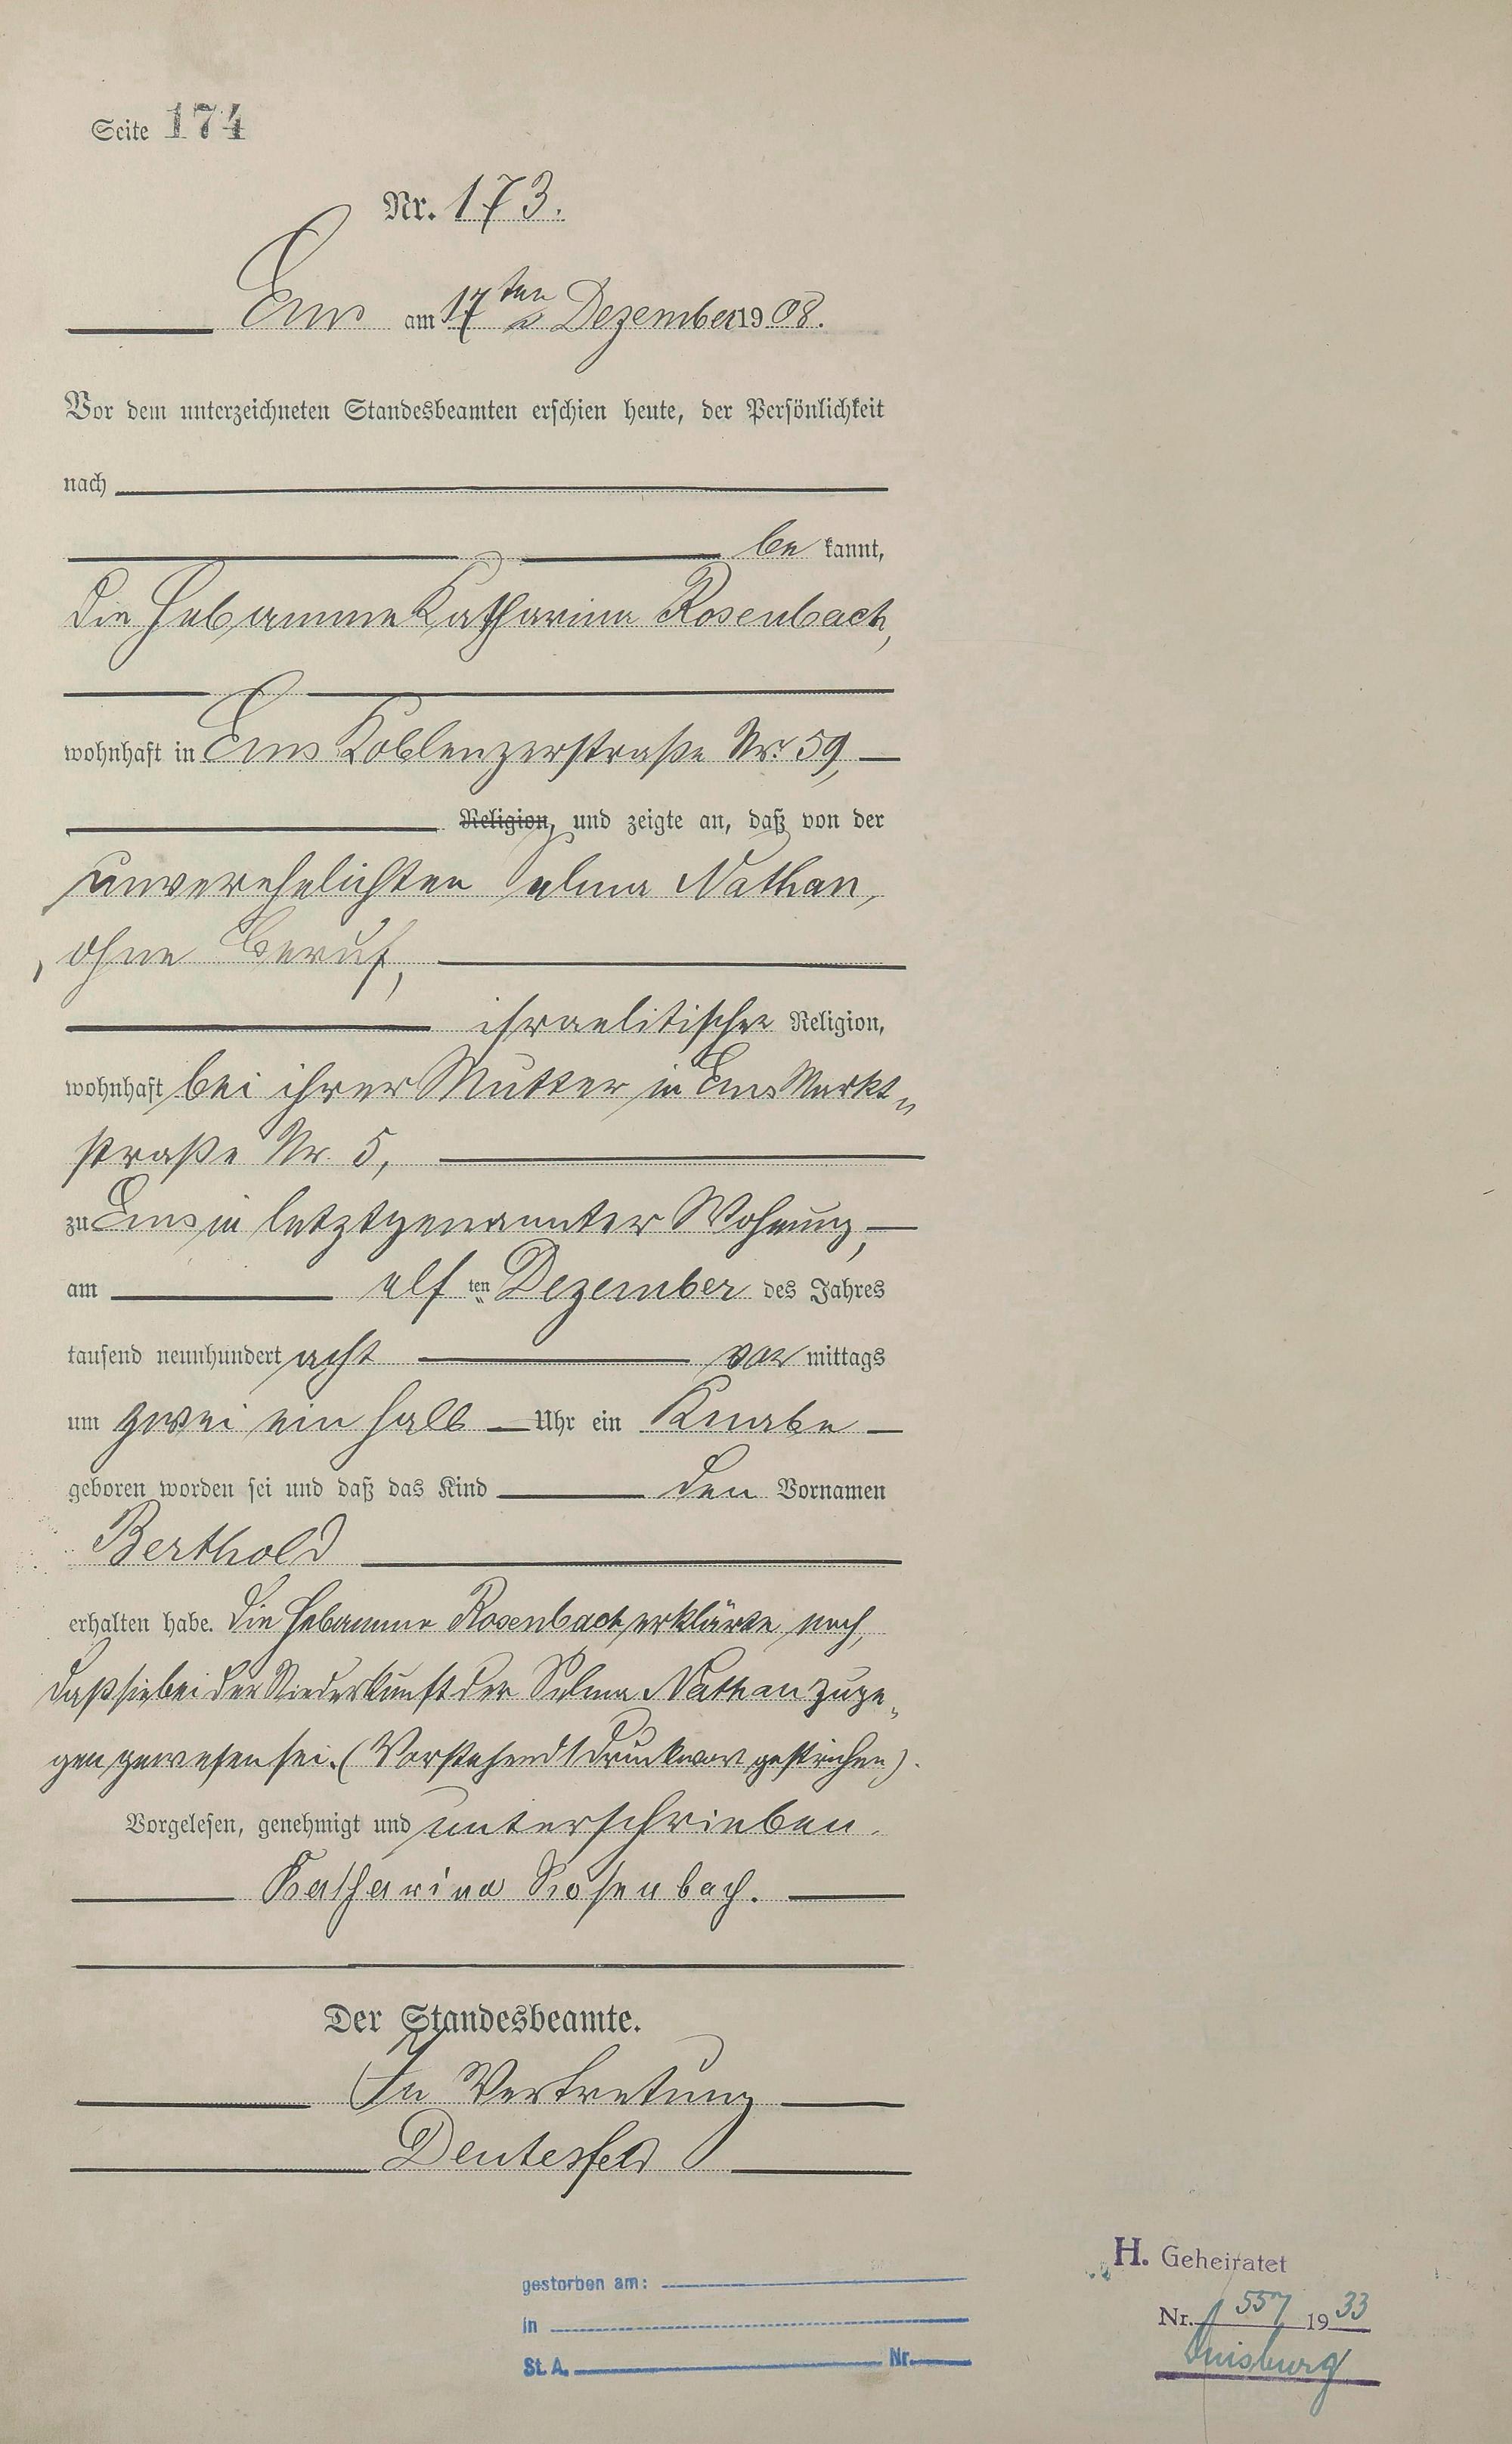 Seite 174
Nr. 173.
Ems am 17ten Dezember 1908.
Vor dem unterzeichneten Standesbeamten erschien heute, der Persönlichkeit
nach
be kannt,
die Hebamme Katharina Rosenbach,
wohnhaft in Ems Koblenzerstraße Nr. 59,
Religion, und zeigte an, daß von der
unverehelichten Selma Nathan,
ohne Beruf,
israelitischer Religion,
wohnhaft bei ihrer Mutter in Ems Markt-
straße Nr. 5,
zu Ems in letztgenannter Wohnung,
am elf ten Dezember des Jahres
tausend neunhundert acht vor mittags
um zwei ein halb Uhr ein Knabe
geboren worden sei und daß das Kind den Vornamen
Berthold
erhalten habe. Die Hebamme Rosenbach erklärte noch,
daß sie bei der Niederkunft der Selma Nathan zuge-
gen gewesen sei. (Vorstehend 1 Druckwort gestrichen).
Vorgelesen, genehmigt und unterschrieben.
Katharina Rosenbach.
Der Standesbeamte.
In Vertretung
Deutesfeld
gestorben am:
in
St. A. Nr.
H. Geheiratet
Nr. 557 1933
Duisburg